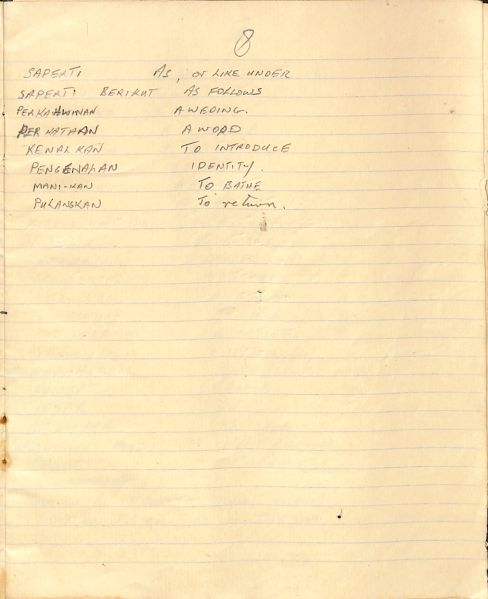 8
SAPERTI AS, OR LIKE UNDER
SAPERTI BERIKUT AS FOLLOWS
PERKAHWINAN A WEDING.
PERKATAAN A WORD
KENALKAN TO INTRODUCE
PENGENALAN IDENTITY.
MANI-KAN TO BATHE
PULANGKAN To return.